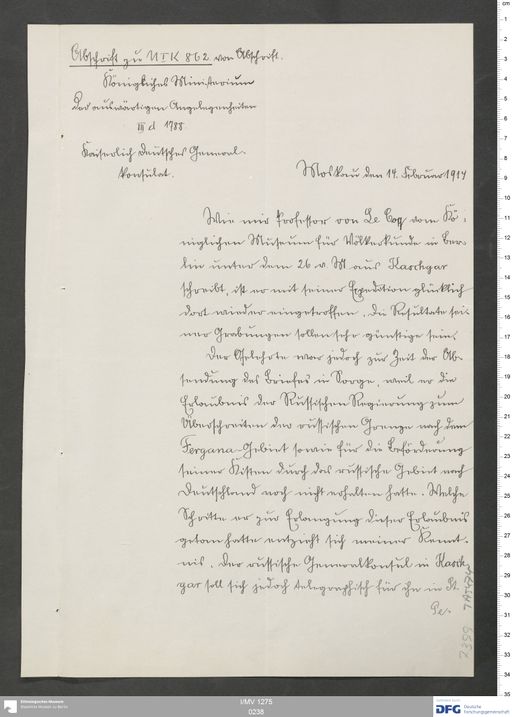 Abschrift zu U I K 862 von Abschrift.
Königliches Ministerium
der auswärtigen Angelegenheiten
III d 1788
Kaiserlich Deutsches General-
konsulat.
Moskau den 14. Februar 1914
Wie mir Professor von Le Coq vom Kö-
niglichen Museum für Völkerkunde in Ber-
lin unter dem 26 v M aus Kaschgar
schreibt, ist er mit seiner Expedition glücklich
dort wieder eingetroffen. Die Resultate sei-
ner Grabungen sollen sehr günstige sein.
Der Gelehrte war jedoch zur Zeit der Ab-
sendung des Briefes in Sorge, weil er die
Erlaubnis der Russischen Regierung zum
Überschreiten der russischen Grenze nach dem
Fergana-Gebiet sowie für die Beförderung
seiner Kisten durch das russische Gebiet nach
Deutschland noch nicht erhalten hatte. Welche
Schritte er zur Erlangung dieser Erlaubnis
getan hatte entzieht sich meiner Kennt-
nis. Der russische Generalkonsul in Kasch-
gar soll sich jedoch telegraphisch für ihn in St.
Pe-
I/MV 1275
0238
Ethnologisches Museum
Staatliche Museen zu Berlin
DFG Deutsche
Forschungsgemeinschaft